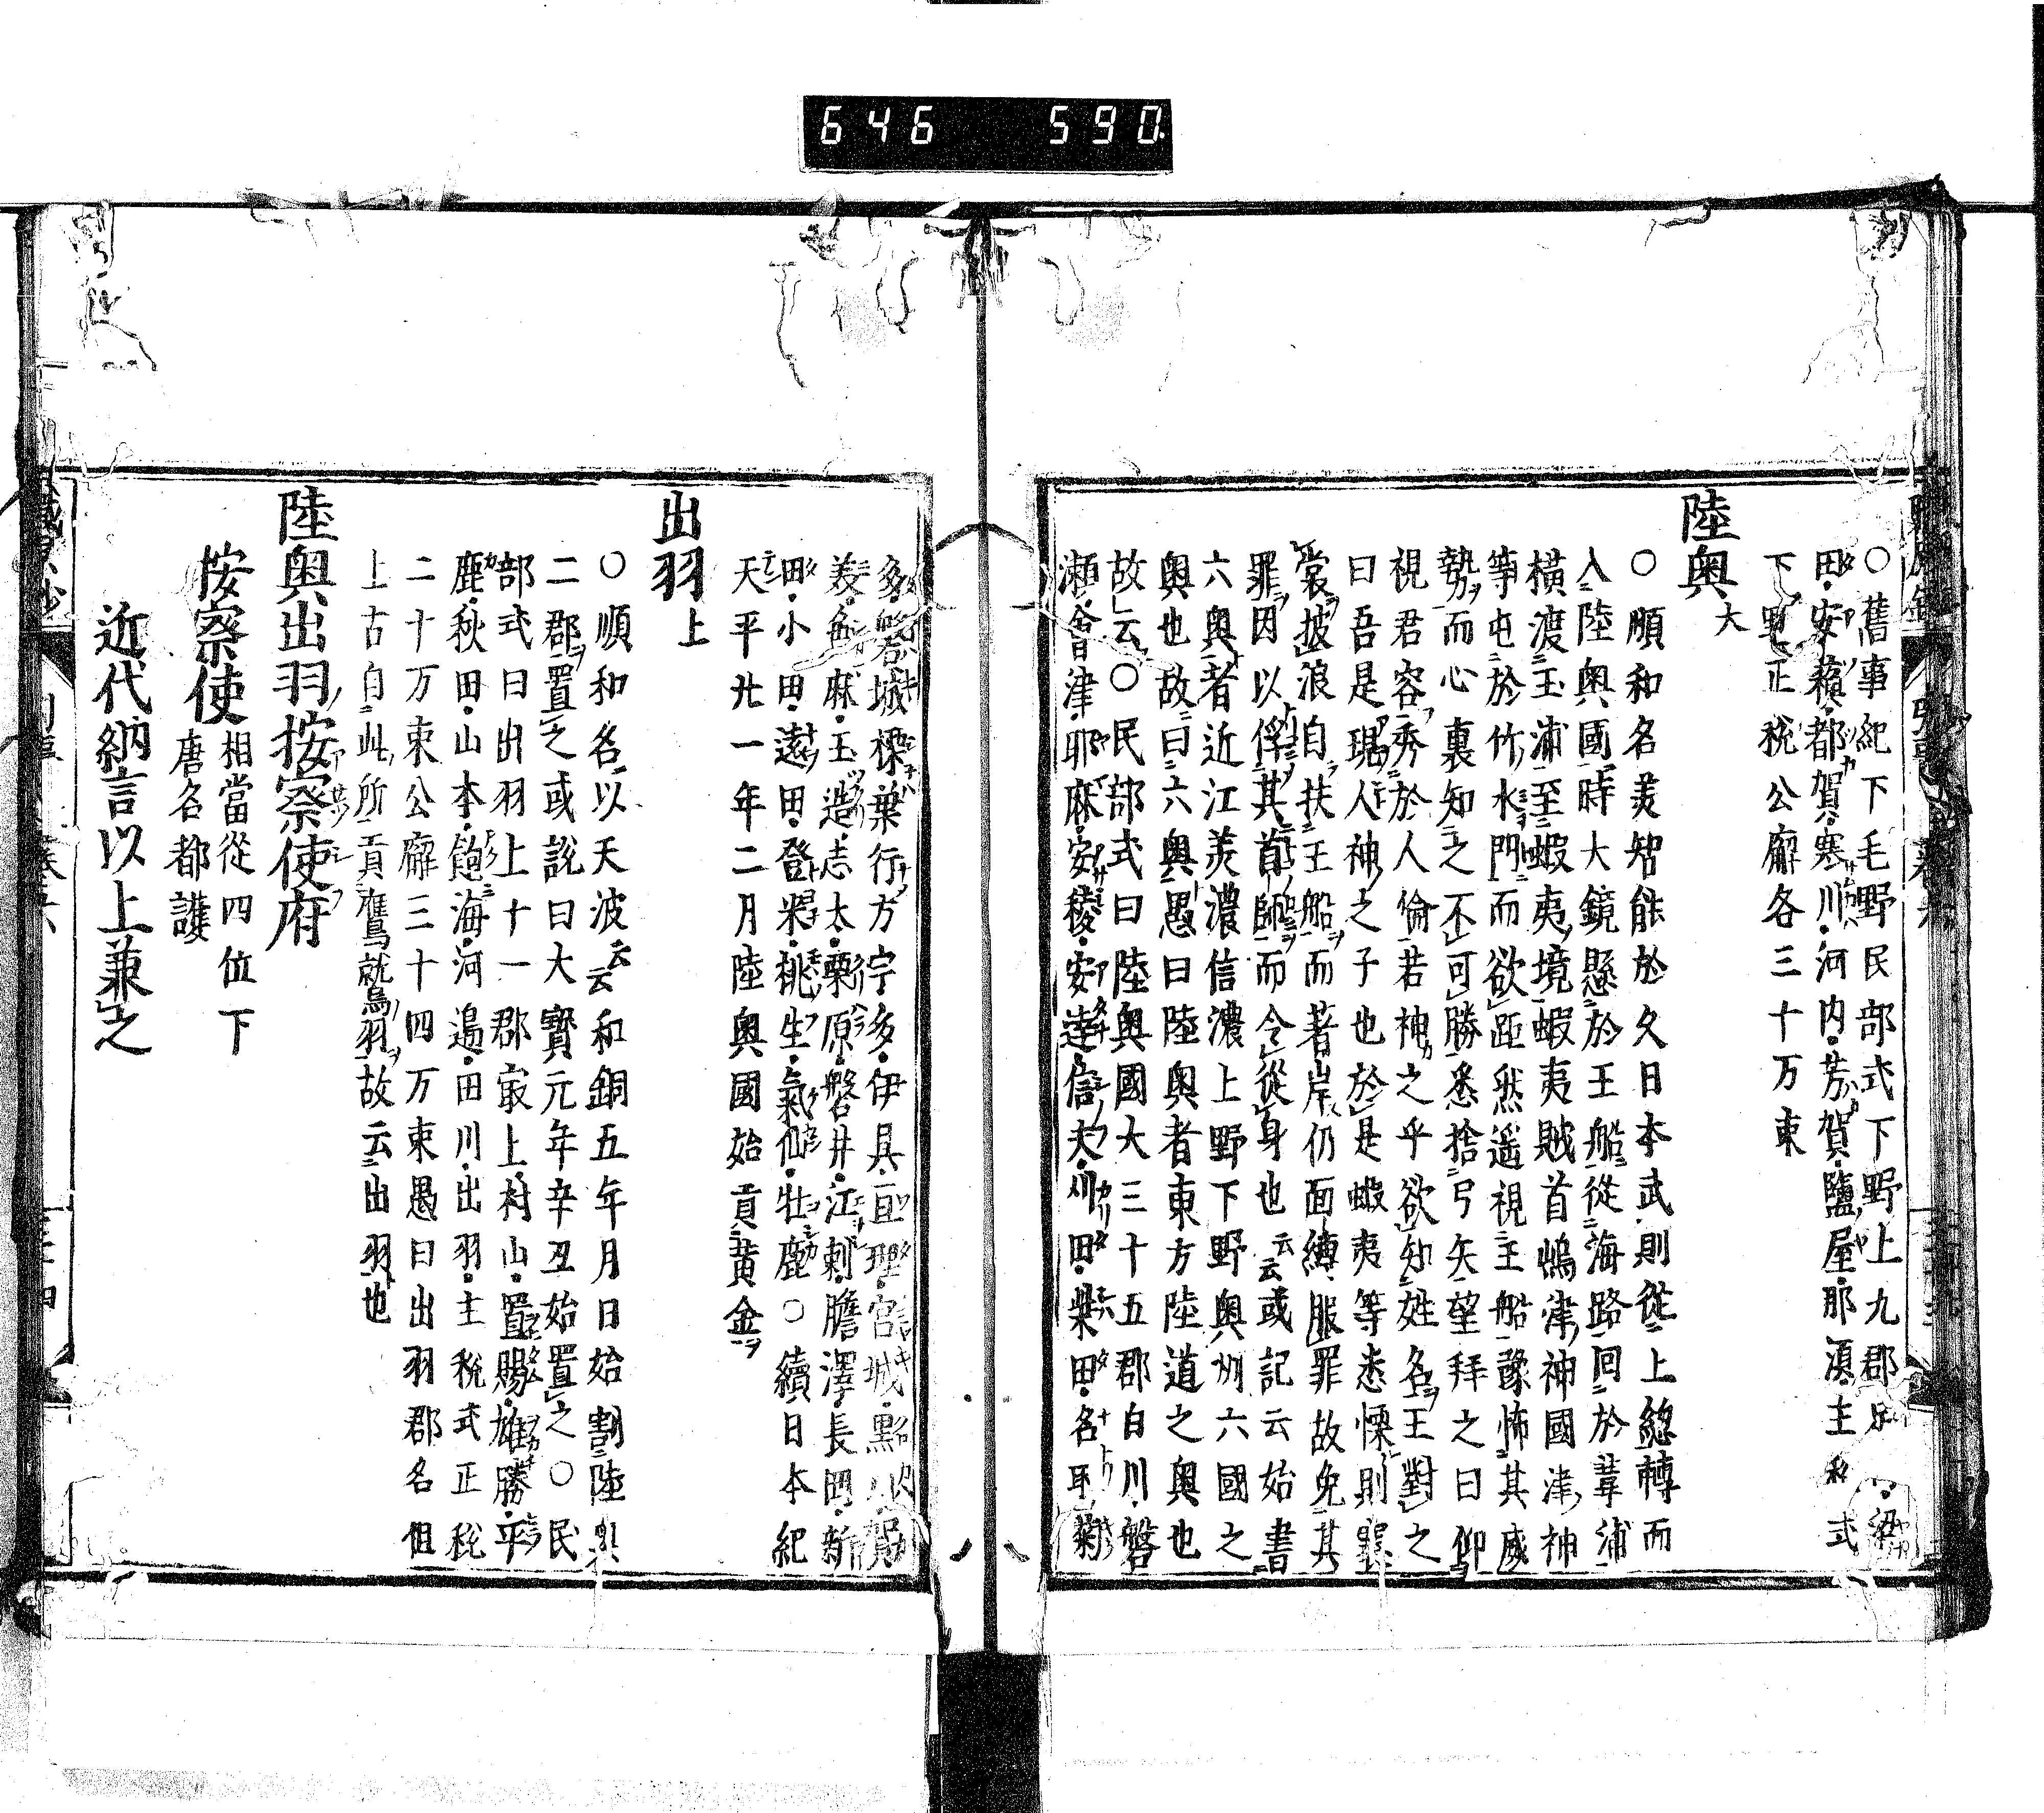 646 590
〇舊事紀下毛野民部式下野上九郡足 梁
田・安蘓・都賀・寒川・河内・芳賀・鹽屋・那湏・主 式
下野正税公廨各三十万束
陸奥大
〇順和名美知能於久日本武則從上総轉而
入陸奥國時大鏡懸於王船從海路回於葦浦
横渡玉浦至蝦夷境蝦夷賊首嶋津神國津神
等屯於竹水門而欲距然遥視王船豫怖其威
勢而心裏知之不可勝悉捨弓矢望拜之曰仰
視君容秀於人倫若神之乎欲知姓名王對之
曰吾是現人神之子也於是蝦夷等悉慄則褰
裳披浪自扶王船而著岸仍面縛服罪故免其
罪因以俘其首帥而令從身也云云或記云始書
六奥者近江美濃信濃上野下野奥州六國之
奥也故曰六奥愚曰陸奥者東方陸道之奥也
故云〇民部式曰陸奥國大三十五郡白川・磐
瀬・會津・耶麻・安積・安達・信夫・刈田・柴田・名取・菊
多・磐城・標葉・行方・宇多・伊具・亘理・宮城・黒川・賀
美・色麻・玉造・志太・栗原・磐井・江刺・膽澤・長岡・新
田・小田・遠田・登米・桃生・氣仙・牡鹿〇續日本紀
天平廿一年二月陸奥國始貢黄金
出羽上
〇順和名以天波云云和銅五年月日始割陸奥
二郡置之或説曰大寳元年辛丑始置之〇民
部式曰出羽上十一郡冣上・村山・置賜・雄勝・平
鹿・秋田・山本・飽海・河邉・田川・出羽・主税式正税
二十万束公廨三十四万束愚曰出羽郡名但
上古自此所貢鷹鷲烏羽故云出羽也
陸奥出羽按察使府
按察使相當從四位下
唐名都護
近代納言以上兼之